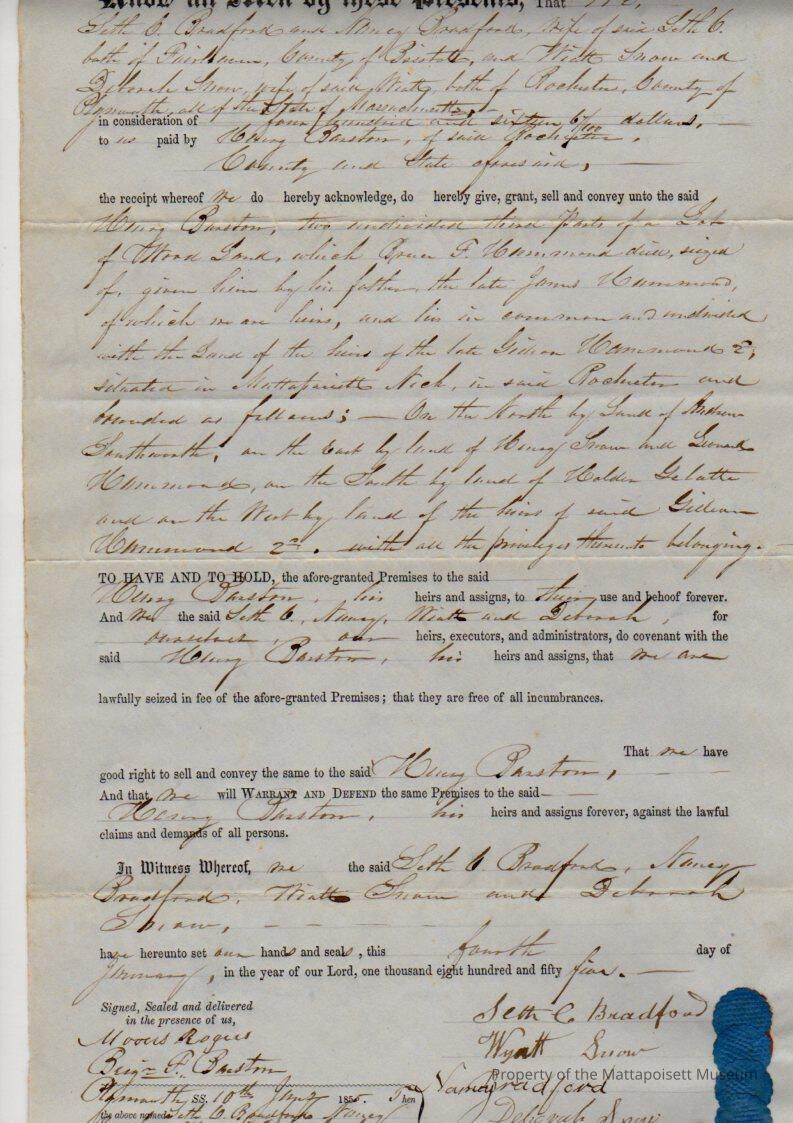 Know all Men by these Presents, That We,
Seth C. Bradford and Nancy Bradford, wife of said Seth C.
both of Fairhaven, County of Bristol, and Wiatt Snow and
Deborah Snow, wife of said Wiatt, both of Rochester, County of
Plymouth, all of the State of Massachusetts,
in consideration of four hundred and sixteen 67/100 dollars,
to us paid by Henry Barstow, of said Rochester,
County and State aforesaid,
the receipt whereof we do hereby acknowledge, do hereby give, grant, sell and convey unto the said
Henry Barstow, two undivided third parts of a Lot
of Wood Land, which F. Hammond died, seized
of, given him by his father, the late James Hammond,
of which we are heirs, and lies in common and undivided
with the Land of the heirs of the late Gideon Hammond 2nd,
situated in Mattapoisett Neck, in said Rochester and
bounded as follows; — On the North by Land of Andrew
Southworth, on the East by land of Henry Snow and Leonard
Hammond, on the South by land of Holder
and on the West by land of the heirs of said Gideon
Hammond 2nd. with all the privileges thereunto belonging. —
TO HAVE AND TO HOLD, the afore-granted Premises to the said
Henry Barstow, his heirs and assigns, to their use and behoof forever.
And we the said Seth C, Nancy, Wiatt and Deborah, for
ourselves, our heirs, executors, and administrators, do covenant with the
said Henry Barstow, his heirs and assigns, that we are
lawfully seized in fee of the afore-granted Premises; that they are free of all incumbrances.
That we have
good right to sell and convey the same to the said Henry Barstow,
And that we will WARRANT AND DEFEND the same Premises to the said
Henry Barstow, his heirs and assigns forever, against the lawful
claims and demands of all persons.
In Witness Whereof, we the said Seth C. Bradford, Nancy
Bradford, Wiatt Snow and Deborah
Snow,
have hereunto set our hands and seals, this fourth day of
January, in the year of our Lord, one thousand eight hundred and fifty five. —
Signed, Sealed and delivered
in the presence of us,
Seth C Bradford
Moores Rogers
Wyatt Snow
Benjn F. Barstow
Nancy Bradford
Plymouth SS. 10th Jany 1855. Then
Deborah Snow
the above named Seth C. Bradford Nancy
Property of the Mattapoisett Museum